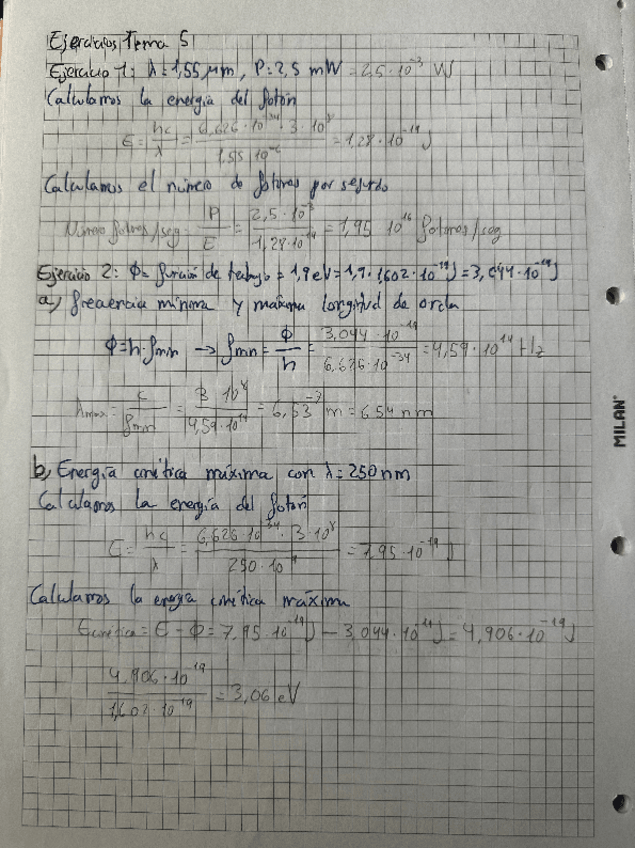 Ejercicios Tema 5
Ejercicio 1: λ = 1,55 μm, P = 2,5 mW = 2,5 · 10⁻³ W
Calculamos la energía del fotón
E = hc/λ = 6,626 · 10⁻³⁴ · 3 · 10⁸ / 1,55 · 10⁻⁶ = 1,28 · 10⁻¹⁹ J
Calculamos el número de fotones por segundo
Número fotones/seg = P/E = 2,5 · 10⁻³ / 1,28 · 10⁻¹⁹ = 1,95 10¹⁶ fotones/seg
Ejercicio 2: Φ = función de trabajo = 1,9 eV = 1,9 · 1,602 · 10⁻¹⁹ J = 3,044 · 10⁻¹⁹ J
a) frecuencia mínima y máxima longitud de onda
Φ = h · fmin → fmin = Φ/h = 3,044 · 10⁻¹⁹ / 6,626 · 10⁻³⁴ = 4,59 · 10¹⁴ Hz
λmax = c/fmin = 3 10⁸ / 4,59 · 10¹⁴ = 6,53⁻⁷ m = 654 nm
MILAN
b) Energía cinética máxima con λ = 250 nm
Calculamos la energía del fotón
E = hc/λ = 6,626 · 10⁻³⁴ · 3 · 10⁸ / 250 · 10⁻⁹ = 7,95 · 10⁻¹⁹ J
Calculamos la energía cinética máxima
Ecinética = E − Φ = 7,95 · 10⁻¹⁹ J − 3,044 · 10⁻¹⁹ J = 4,906 · 10⁻¹⁹ J
4,906 · 10⁻¹⁹ / 1,602 · 10⁻¹⁹ = 3,06 eV